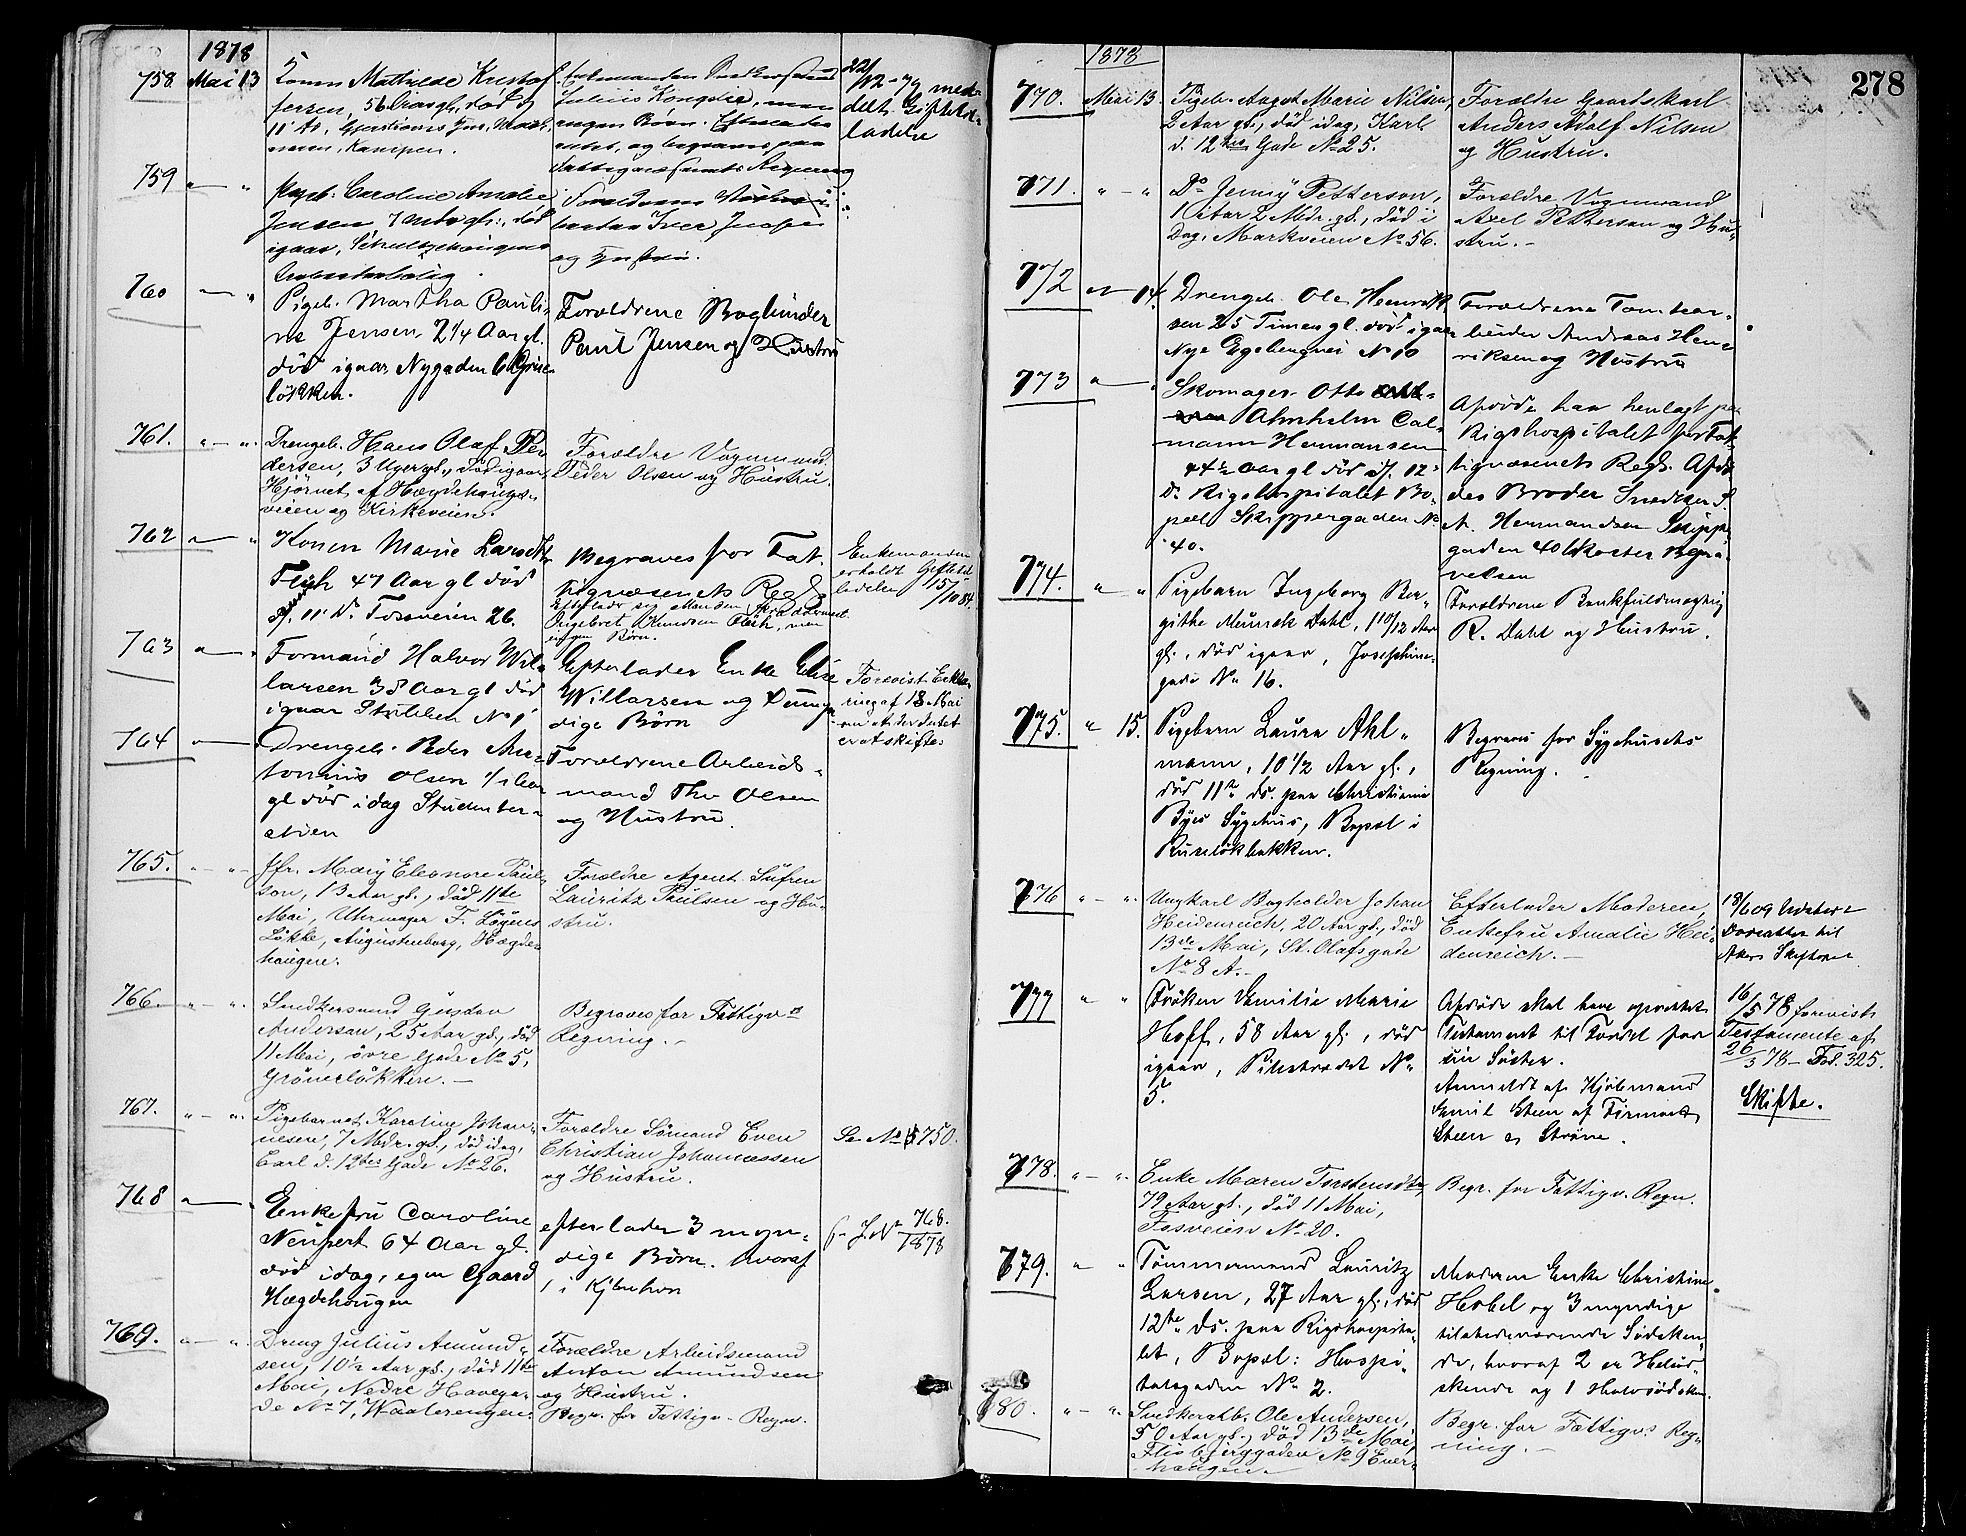 1878
758. Mai 13 Konen Mathilde Kristof
fersen, 56 Aar gl., død
ingen Børn.
22/12-79 med-
delt Giftetil-
ladelse
759 " Pigeb. Caroline Amalie
Jensen
igaar,
og Hustru.
760 " Pigeb. Martha Pauli-
ne Jensen, 2 1/4 Aar gl.
død igaar, Nygaden 6 Grüner-
løkken.
Forældrene Bogbinder
Paul Jensen og Hustru
761. " - " Drengeb. Hans Olaf Pe-
dersen, 3 Uger gl., død igaar,
Hjørnet af Hægdehaugs-
veien og Kirkeveien.
Forældre Vognmand
Peder Olsen og Hustru.
762 " Konen Marie Larsdtr
Flesk 47 Aar gl død
d. 11' Ds Fossveien 26.
Begraves for Fat-
tigvæsenets Regn
Efterlader sig Manden
Engebret Knudsen Flesk, men
ingen Børn.
Enkemanden
erholdt Giftetil-
ladelse 15/10 84.
763 " Formand Halvor Wil-
larsen 38 Aar gl død
igaar Stubben No 1
Efterlader Enke Elise
Willarsen og 2 umyn-
dige Børn
Forevist Erklæ-
ring af 18 Mai
om at der Intet
er at skifte.
764 " Drengeb. Peder An-
tonius Olsen 1/2 Aar
gl død idag Studenter-
stien
Forældrene Arbeids-
mand Thv Olsen
og Hustru.
765. " - " Jfr. Mary Eleonore Paul-
son, 13 Aar gl., død 11te
Mai, Uhrmager F. Løgens
Løkke, Augustenborg, Hægde-
haugen.
Forældre Agent Søfren
Lauritz Paulsen og Hu-
stru.
766. " - " Snedkersvend Gustav
Anderson, 25 Aar gl., død
11 Mai, øvre Gade No 5,
Grünerløkken. -
Begraves for Fattigvs
Regning. -
767. " - " Pigebarnet Karoline Johan-
nesen, 7 Mdr. gl., død idag,
Carl d. 12tes Gade No 26.
Forældre Sømand Even
Christian Johannessen
og Hustru.
Se No 750.
768 " Enkefru Caroline
Neupert 64 Aar gl.
død idag, egen Gaard
Hægdehougen
efterlader 3 myn-
dige Børn. hvoraf
1 i Kjbenhvn
S. J. No 768./1878
769. " - " Dreng Julius Amund-
sen, 10 1/2 Aar gl., død 11te
Mai, Nedre Havega-
de No 7, Waalerengen.
Forældre Arbeidsmand
Anton Amundsen
og Hustru.
Begr. for Fattigv. Regn.
278
1878
770. Mai 13. Pigeb. Aagot Marie Nilsen,
2 Aar gl., død idag, Karl
d. 12tes Gade No 25.
Forældre Gaardskarl
Anders Adolf Nilsen
og Hustru.
771. " - " Do Jenny Petterson,
1 Aar 2 Mdr. gl., død i
Dag, Markveien No 56.
Forældre Vognmand
Axel Petterson og Hu-
stru. -
772 " 14. Drengeb. Ole Henrik-
sen 25 Timer gl. død igaar
Nye Egebergvei No 10
Forældrene Tomtear-
beider Andreas Hen-
riksen og Hustru
773 " Skomager Otto
Almholm Cal-
mann Hermansen
44 1/2 Aar gl død d. 12'
Ds Rigshospitalet Bo-
pæl Skippergaden No
40.
Afdøde har henligt paa
Rigshospitalet for Fat-
tigvæsenets Regn. Afdø-
des Broder Snedker S.
A. Hermandsen Skipper-
gaden 40 bekoster Begra-
velsen
774. " " Pigebarn Ingeborg Ber-
githe Munck Dahl, 1 10/12 Aar
gl., død igaar, Josephine-
gade No 16.
Forældrene Bankfuldmægtig
R. Dahl og Hustru.
775. " 15. Pigebarn Laura Ahl-
mann, 10 1/2 Aar gl.,
død 11te ds. paa Christiania
Byes Sygehus, Bopæl i
Ruseløkbakken.
Begraves for Sygehusets
Regning.
776 " - " Ungkarl Bogholder Johan
Heidenreich, 20 Aar gl., død
13de Mai, St. Olafsgade
No 8 A. -
Efterlader Moderen,
Enkefru Amalie Hei-
denreich. -
18/6 09
til
Akers Skifteret
777 " " Frøken Emilie Marie
Hoff, 58 Aar gl., død
igaar, Pilestrædet No
5.
Afdøde skal have oprettet
Testament til Fordel for
sin Søster.
Anmeldt af Kjøbmand
Emil Steen af Firmaet
Steen & Strøm.
16/5 78 forevist
Testamente af
26/3 78 - Fol. 325.
Skifte.
778. " - " Enke Maren Torstensdtr,
79 Aar gl., død 11 Mai,
Fosveien No 20.
Begr. for Fattigv. Regn.
779. " " Tømmermand Lauritz
Larsen, 27 Aar gl., død
12te ds. paa Rigshospita-
let, Bopæl: Hospi-
talsgaden No 2.
Moderen Enke Christine
Hobel og 3 myndige
tilstedeværende Sødsken-
de, hvoraf 2 er Helsød-
skende og 1 Halvsødsken.
780. " - " Snedkerarb. Ole Andersen,
50 Aar gl., død 13de Mai,
Flisbjerggaden No 9 Ener-
haugen. -
Begr. for Fattigvs Reg-
ning. -